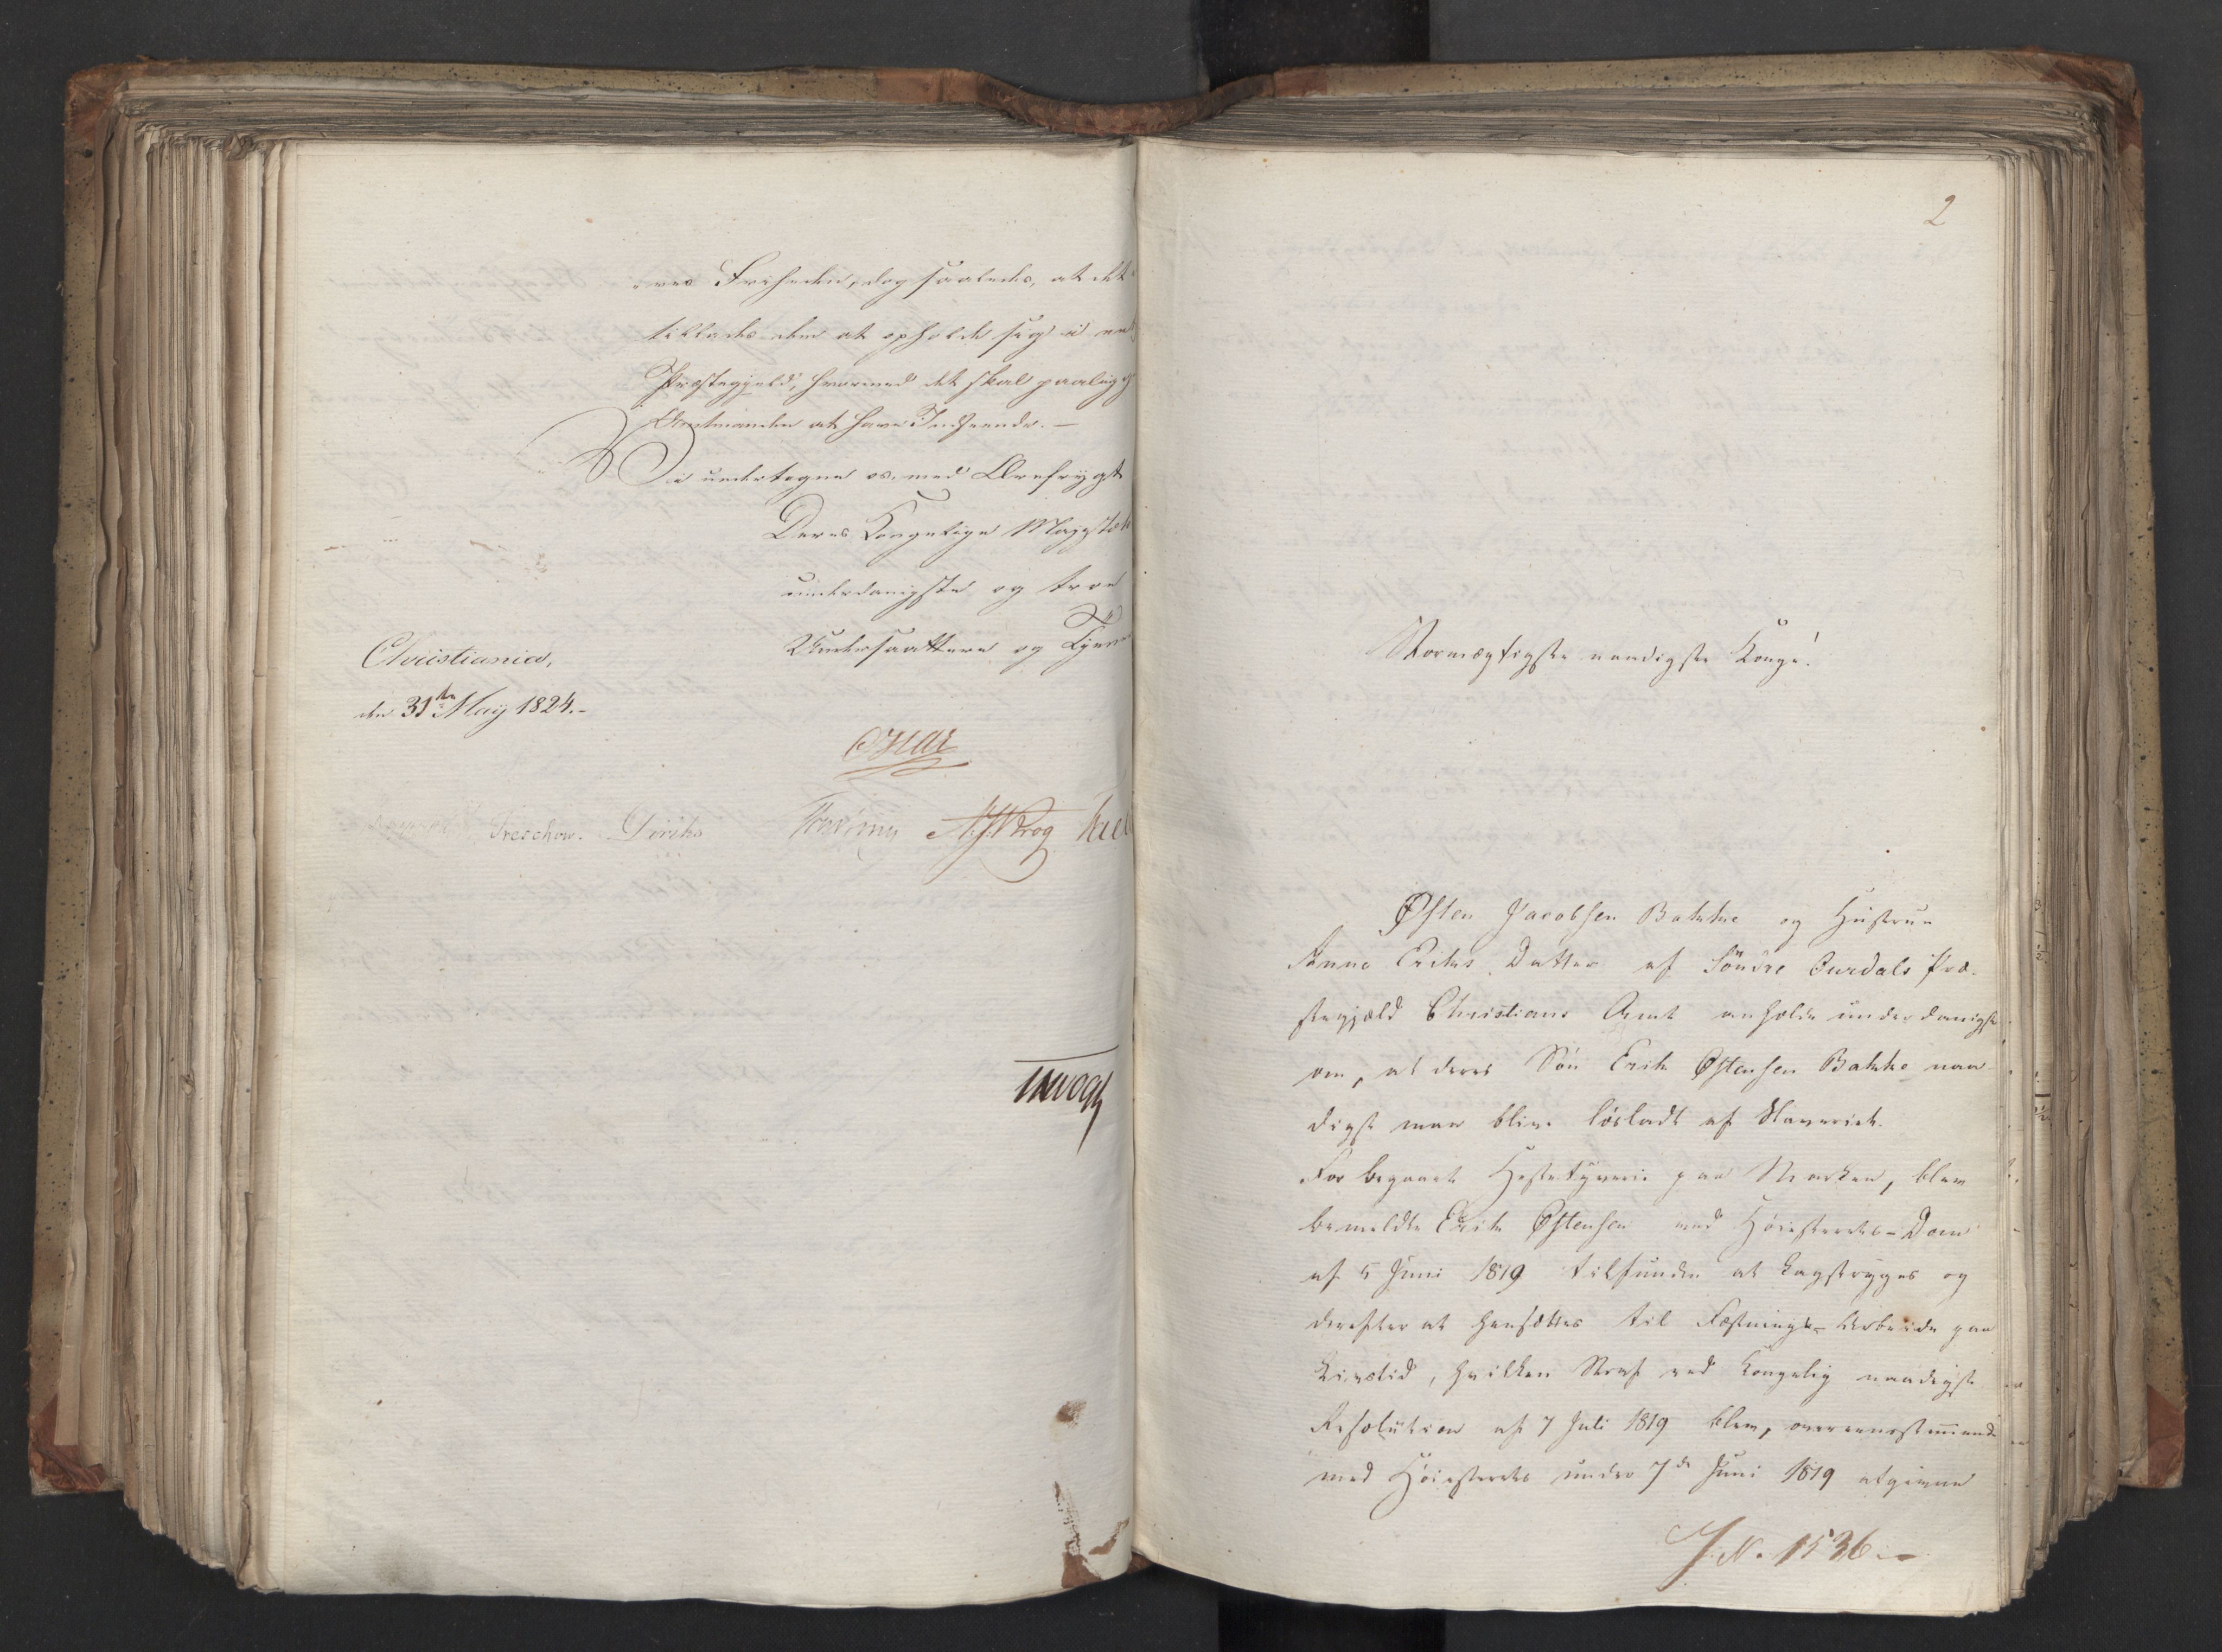 deres Frihed, dog saaledes, at det
tillades dem at opholde sig i eet
Præstegjeld, hvormed det skal paaligge
Amtmanden at have Indseende. —
Vi undertegne os med Ærefrygt
Deres Kongelige Majestæts
underdanigste og troe
Undersaatter og Tjenere
Christiania,
den 31te May 1824.-
Oscar
Treschow. Diriks A. J. Krog
2
Stormægtigste naadigste Konge!
Østen Jacobsen Bakke og Hustrue
Anne Eriks Datter af Söndre Ourdals Præ-
stegjæld Christians Amt anholde underdanigst
om, at deres Sön Erik Østensen Bakke naa-
digst maa blive lösladt af Slaveriet.
For begaaet Hestetyverie paa Marken, blev
bemeldte Erik Østensen med Höiesterets-Dom
af 5 Juni 1819 tilfunden at kagstryges og
derefter at hensættes til Fæstnings-Arbeide paa
Livstid, hvilken Straf ved Kongelig naadigst
Resolution af 7 Juli 1819 blev, overeensstemmende
med Höiesterets under 7de Juni 1819 afgivne
J. N. 1536.-